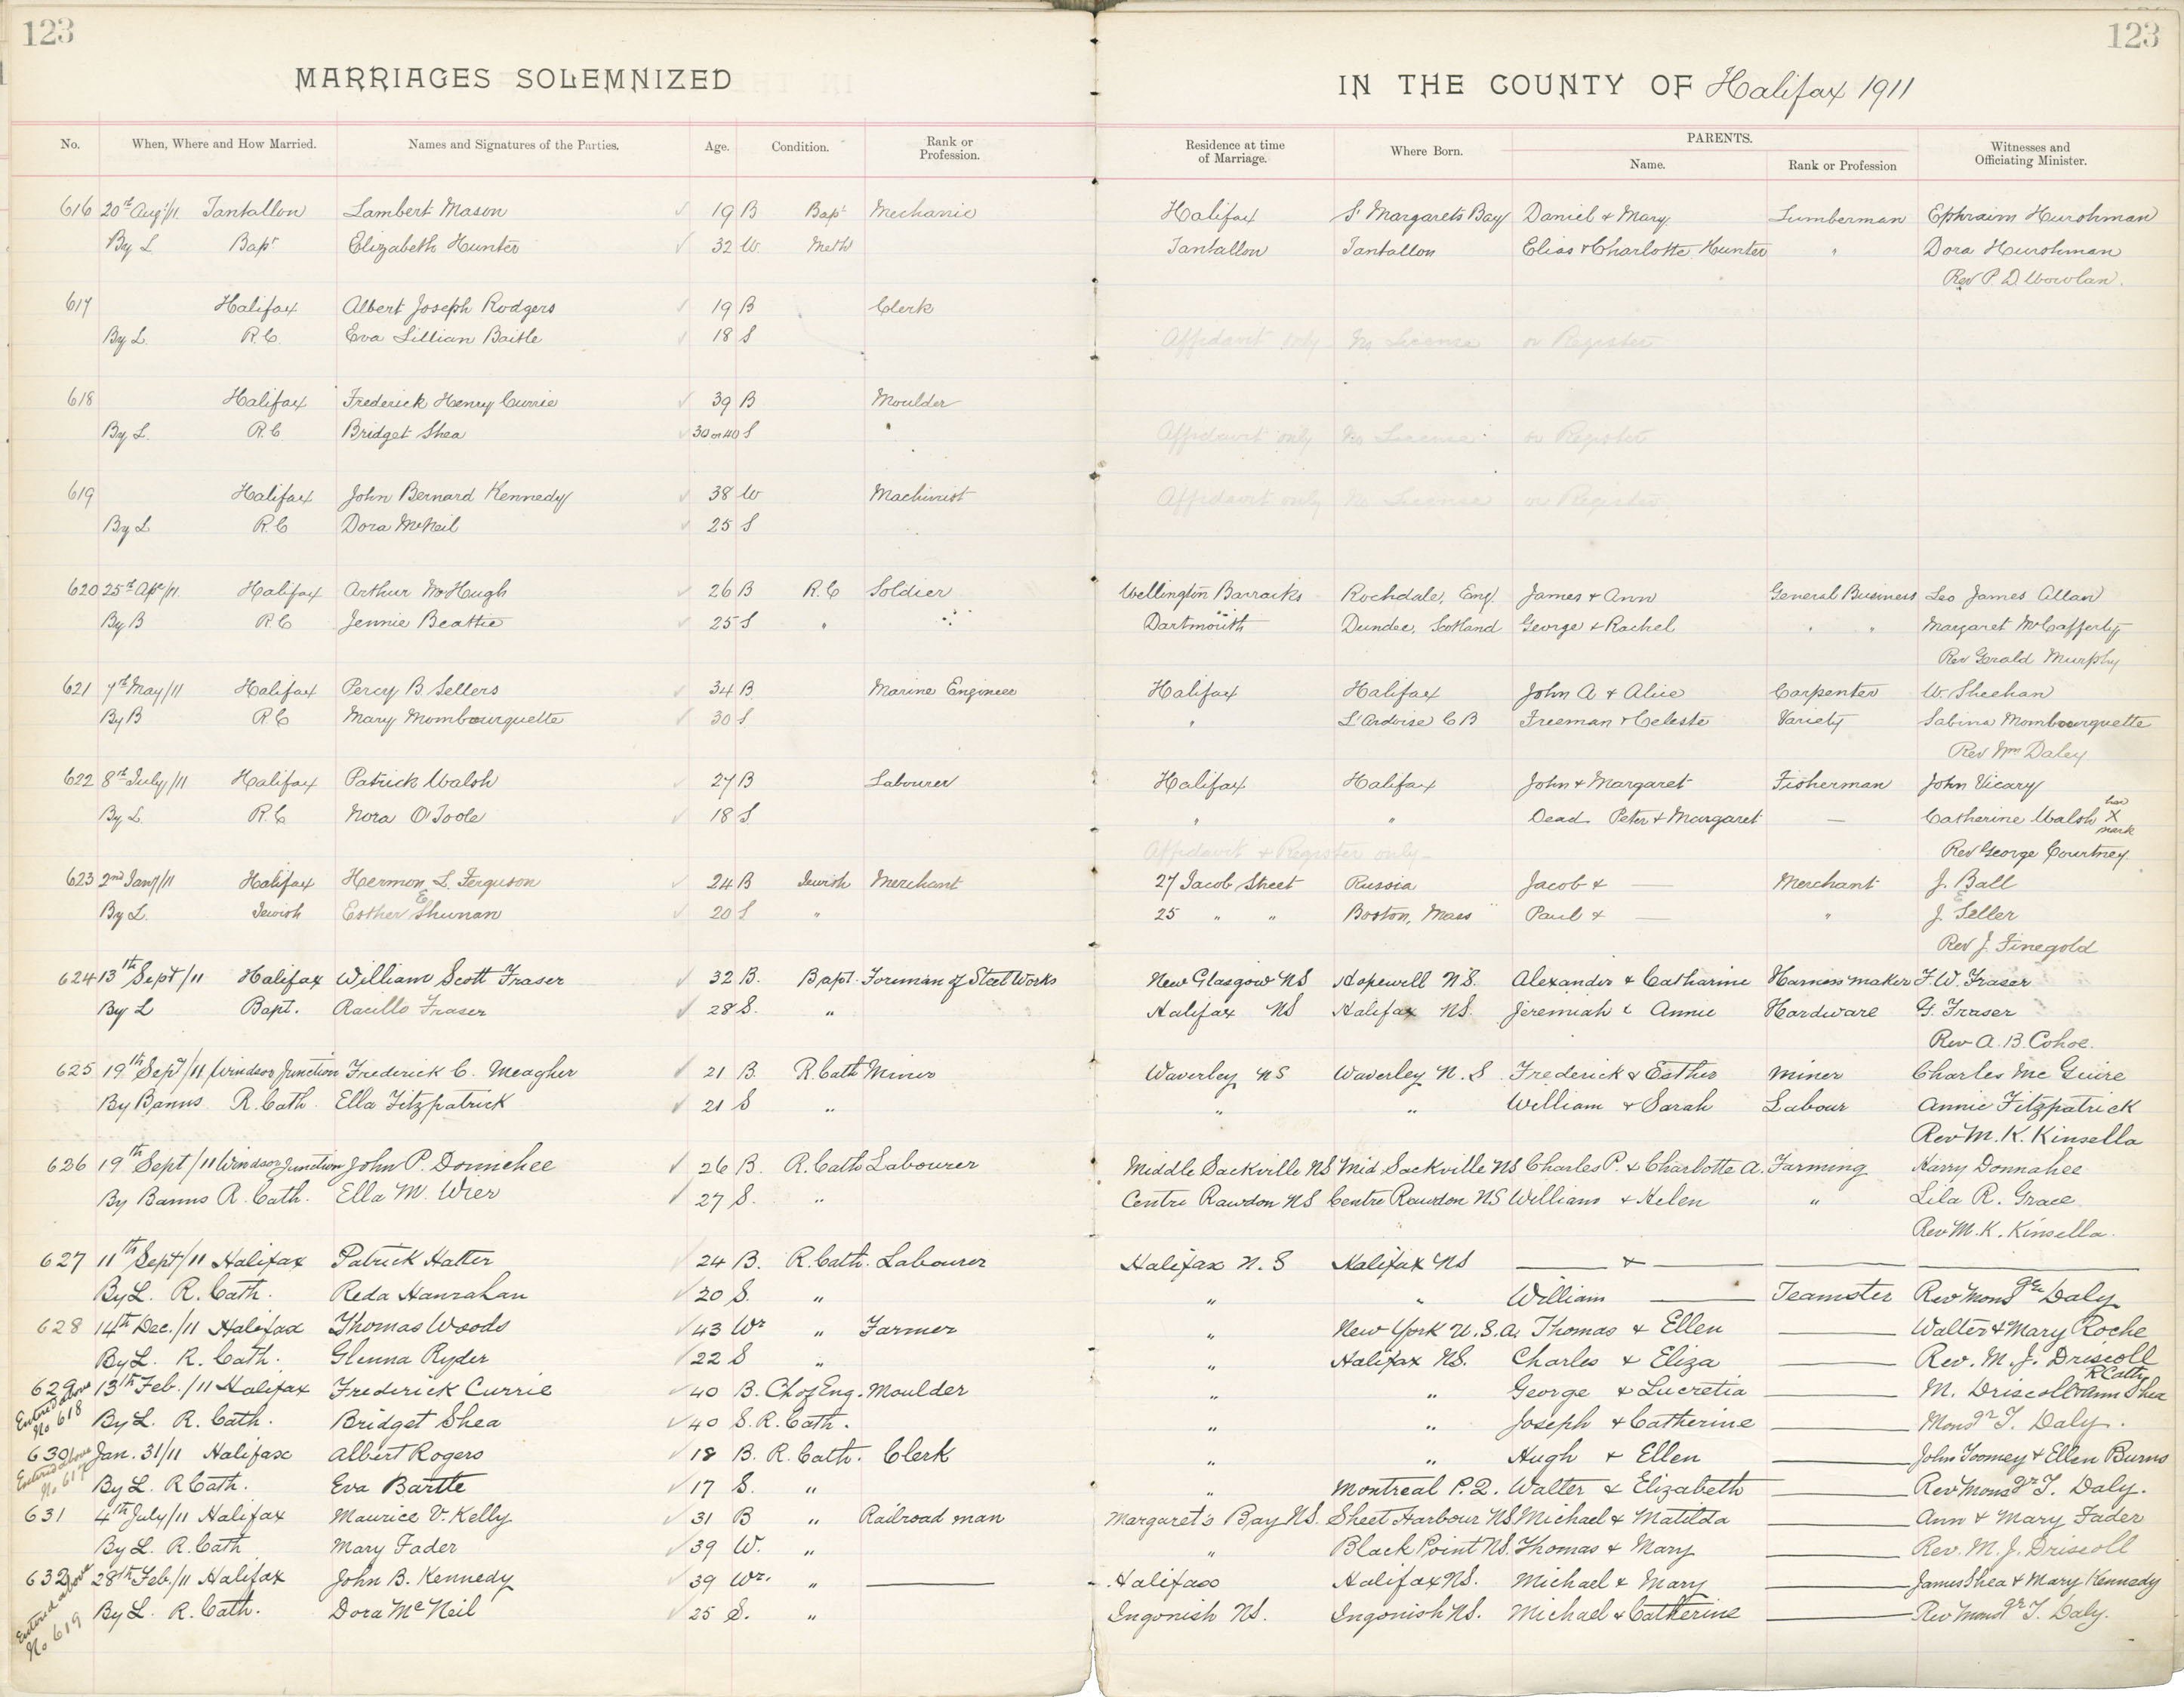 123
123
MARRIAGES SOLEMNIZED
IN THE COUNTY OF Halifax 1911
No. When, Where and How Married. Names and Signatures of the Parties. Age. Condition. Rank or Profession. Residence at time of Marriage. Where Born. PARENTS. Name. Rank or Profession Witnesses and Officiating Minister.
616 20th Aug/11. Tantallon Lambert Mason 19 B Bapt Mechanic Halifax St Margarets Bay Daniel & Mary Lumberman Ephraim Hurshman
By L Bapt Elizabeth Hunter 32 W. Meth Tantallon Tantallon Elias & Charlotte Hunter " Dora Hurshman
Rev P. D.
617 Halifax Albert Joseph Rodgers 19 B Clerk
By L. R.C Eva Lillian 18 S Affidavit only No License or Register
618 Halifax Frederick Henry Currie 39 B Moulder
By L. R.C. Bridget Shea 30 or 40 S Affidavit only No License or Register
619 Halifax John Bernard Kennedy 38 W Machinist Affidavit only No License or Register
By L R.C Dora McNeil 25 S
620 25th Apr/11. Halifax Arthur McHugh 26 B R.C Soldier Wellington Barracks Rochdale, Eng. James & Ann General Business Leo James Allan
By B R.C Jennie Beattie 25 S " Dartmouth Dundee, Scotland George & Rachel " " Margaret McCafferty
Rev Gerald Murphy
621 7th May/11 Halifax Percy B. Sellers 34 B Marine Engineer Halifax Halifax John A & Alice Carpenter W. Sheehan
By B R.C Mary Mombourquette 30 S " L'Ardoise C B Freeman & Celeste Variety Sabina Mombourquette
Rev Wm Daley
622 8th July/11 Halifax Patrick Walsh 27 B Labourer Halifax Halifax John & Margaret Fisherman John Vicary
By L. R.C Nora O'Toole 18 S. " " Dead Peter & Margaret — Catherine Walsh her X mark
Affidavit & Register only— Rev George Courtney
623 2nd Jany/11 Halifax Hermon L. Ferguson 24 B Jewish Merchant 27 Jacob Street Russia Jacob & — Merchant J. Ball
By L. Jewish Esther E Shunan 20 S " 25 " " Boston, Mass Paul & — " J. Seller
Rev J. Finegold
624 13th Sept/11 Halifax William Scott Fraser 32 B. Bapt. Foreman of Steel Works New Glasgow NS Hopewell N.S. Alexander & Catharine Harness maker F. W. Fraser
By L Bapt. Racillo Fraser 28 S. " Halifax NS Halifax NS. Jeremiah & Annie Hardware G. Fraser
Rev A. B. Cohoe.
625 19th Sept/11 Windsor Junction Frederick C. Meagher 21 B. R. Cath Miner Waverley NS Waverley N.S. Frederick & Esther Miner Charles Mc Guire
By Banns R. Cath. Ella Fitzpatrick 21 S " " " William & Sarah Labour Annie Fitzpatrick
Rev M. K. Kinsella
626 19th Sept/11 Windsor Junction John P. Donnehee 26 B. R. Cath Labourer Middle Sackville NS Mid Sackville NS Charles P. & Charlotte A. Farming Harry Donnahee
By Banns R. Cath. Ella M. Wier 27 S. " Centre Rawdon NS Centre Rawdon NS William & Helen " Lila R. Grace
Rev M. K. Kinsella.
627 11th Sept/11 Halifax Patrick Hatter 24 B. R. Cath. Labourer Halifax N.S Halifax NS — & — — —
By L. R. Cath. Reda Hanrahan 20 S. " " " William — Teamster Rev Monsgr Daly
628 14th Dec./11 Halifax Thomas Woods 43 Wr " Farmer " New York U.S.A. Thomas & Ellen — Walter & Mary Roche
By L. R. Cath. Glenna Ryder 22 S " " Halifax NS. Charles & Eliza — Rev. M. J. Driscoll R Cath
629 Entered above No 618 13th Feb./11 Halifax Frederick Currie 40 B. Ch of Eng. Moulder " " George & Lucretia — M. Driscoll & Ann Shea
By L. R. Cath. Bridget Shea 40 S. R. Cath. " " Joseph & Catherine — Monsgr T. Daly.
630 Entered above No 617 Jan. 31/11 Halifax Albert Rogers 18 B. R. Cath. Clerk " " Hugh & Ellen — John Toomey & Ellen Burns
By L. R Cath. Eva Bartte 17 S. " " Montreal P.Q. Walter & Elizabeth — Rev Monsgr T. Daly.
631 4th July/11 Halifax Maurice V. Kelly 31 B " Railroad man Margaret's Bay NS. Sheet Harbour NS Michael & Matilda — Ann & Mary Fader
By L. R. Cath Mary Fader 39 W. " " Black Point NS. Thomas & Mary — Rev. M. J. Driscoll
632 Entered above No 619 28th Feb./11 Halifax John B. Kennedy 39 Wr. " — Halifax Halifax NS. Michael & Mary — James Shea & Mary Kennedy
By L. R. Cath. Dora McNeil 25 S. " Ingonish NS. Ingonish NS. Michael & Catherine — Rev Monsgr T. Daly.